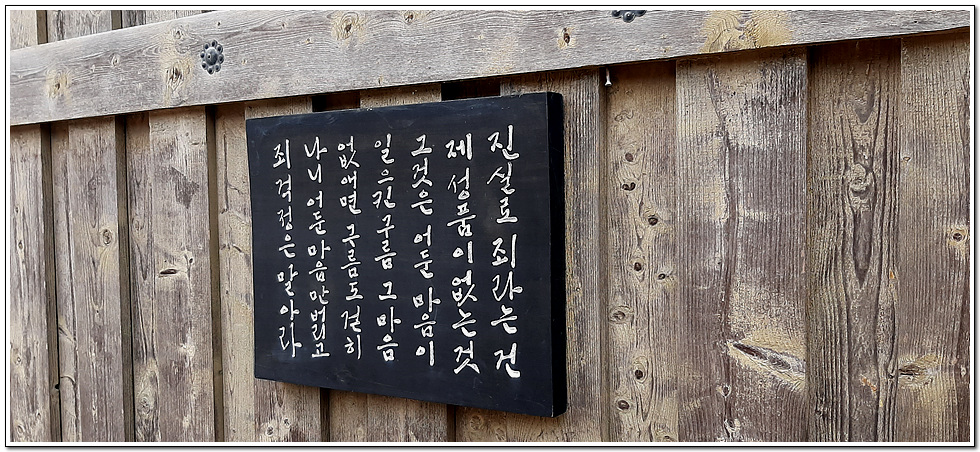 진실로 죄라는 건
제 성품이 없는 것
그것은 어둔 마음이
일으킨 구름 그 마음
없애면 구름도 걷히
나니 어둔 마음만 버리고
죄 걱정은 말아라